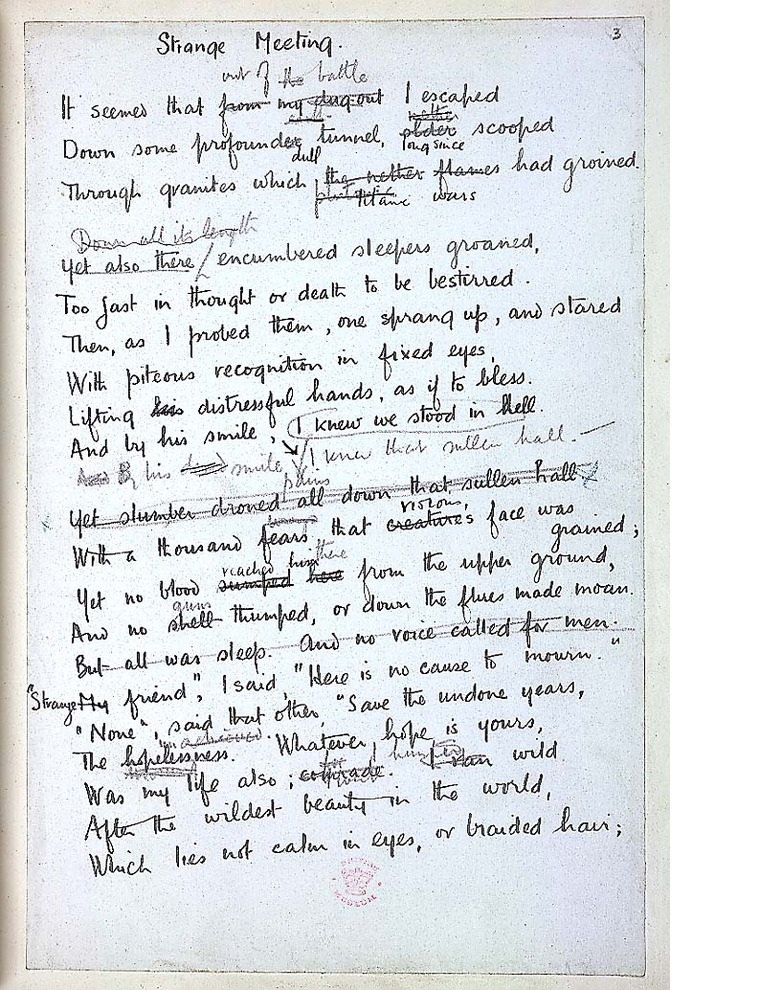 3
Strange Meeting.
out of the battle
It seemed that from my dug-out I escaped
nether
Down some profounder tunnel, older scooped
dull long since
Through granites which the nether flames had groined.
Titanic wars
Down all its length
Yet also there encumbered sleepers groaned,
Too fast in thought or death to be bestirred.
Then, as I probed them, one sprang up, and stared
With piteous recognition in fixed eyes,
Lifting his distressful hands, as if to bless.
And by his smile, I knew we stood in Hell.
And By his smile I knew that sullen hall. —
pains
Yet slumber droned all down that sullen hall
visions,
With a thousand fears that creatures face was
grained;
reached him there
Yet no blood sumped here from the upper ground,
guns
And no shell thumped, or down the flues made moan.
But all was sleep. And no voice called for men.
"Strange My friend", I said, "Here is no cause to mourn."
"None", said that other, "Save the undone years,
unachieved.
The hopelessness. Whatever hope is yours,
hunted
Was my life also; comrade. I ran wild
After the wildest beauty in the world,
Which lies not calm in eyes, or braided hair;
MUSEUM